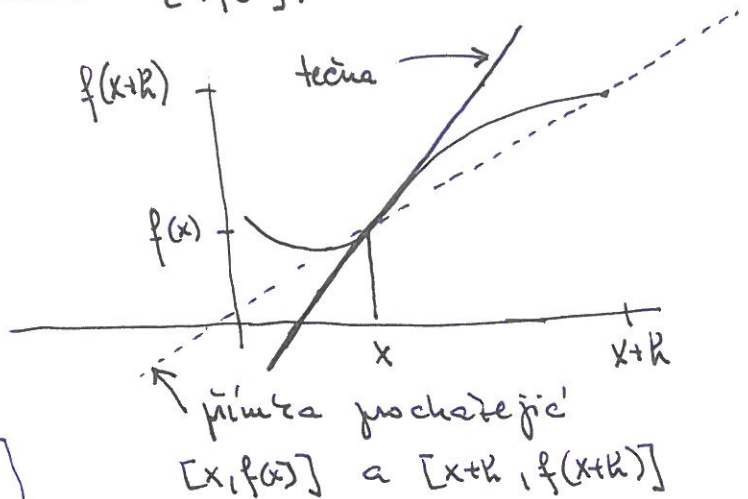 f(x+h)
tečna
f(x)
x
x+h
přímka procházející
[x, f(x)] a [x+h, f(x+h)]